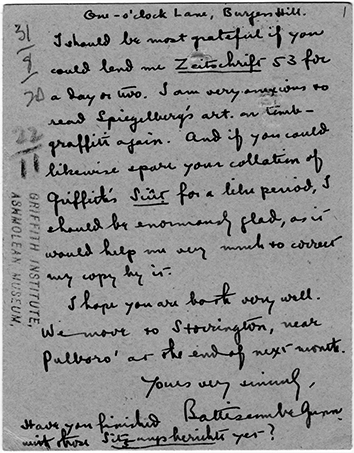 One-o'clock Lane, Burgess Hill.
I should be most grateful if you
could lend me Zeitschrift 53 for
a day or two. I am very anxious to
read Spiegelberg's art. on tomb-
graffiti again. And if you could
likewise spare your collation of
Griffith's Siût for a like period, I
should be enormously glad, as it
would help me very much to correct
my copy by it.
I hope you are both very well.
We move to Storrington, near
Pulboro' at the end of next month.
Yours very sincerely,
Battiscombe Gunn.
Have you finished
with those Sitzungsberichte yet?
31/8/20
22/11
GRIFFITH INSTITUTE,
ASHMOLEAN MUSEUM.
1